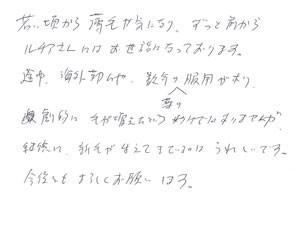 若い頃から薄毛が気になり、ずっと前から
ルチアさんにはお世話になっております。
途中、海外勤務や、数年の服用があり、
薬の
劇的に毛が増えたというわけではありませんが
継続に、新毛が生えてきているのはうれしいです。
今後ともよろしくお願いします。